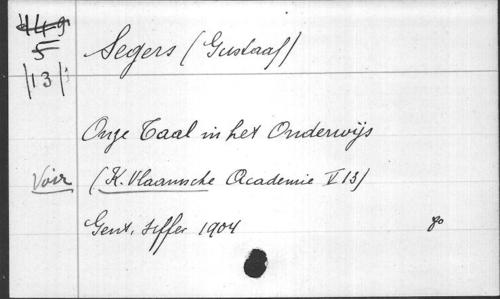 5
/13/
Segers (Gustaaf)
Onze Taal in het Onderwijs
Voir (K. Vlaamsche Academie V 13)
Gent, Siffer 1904